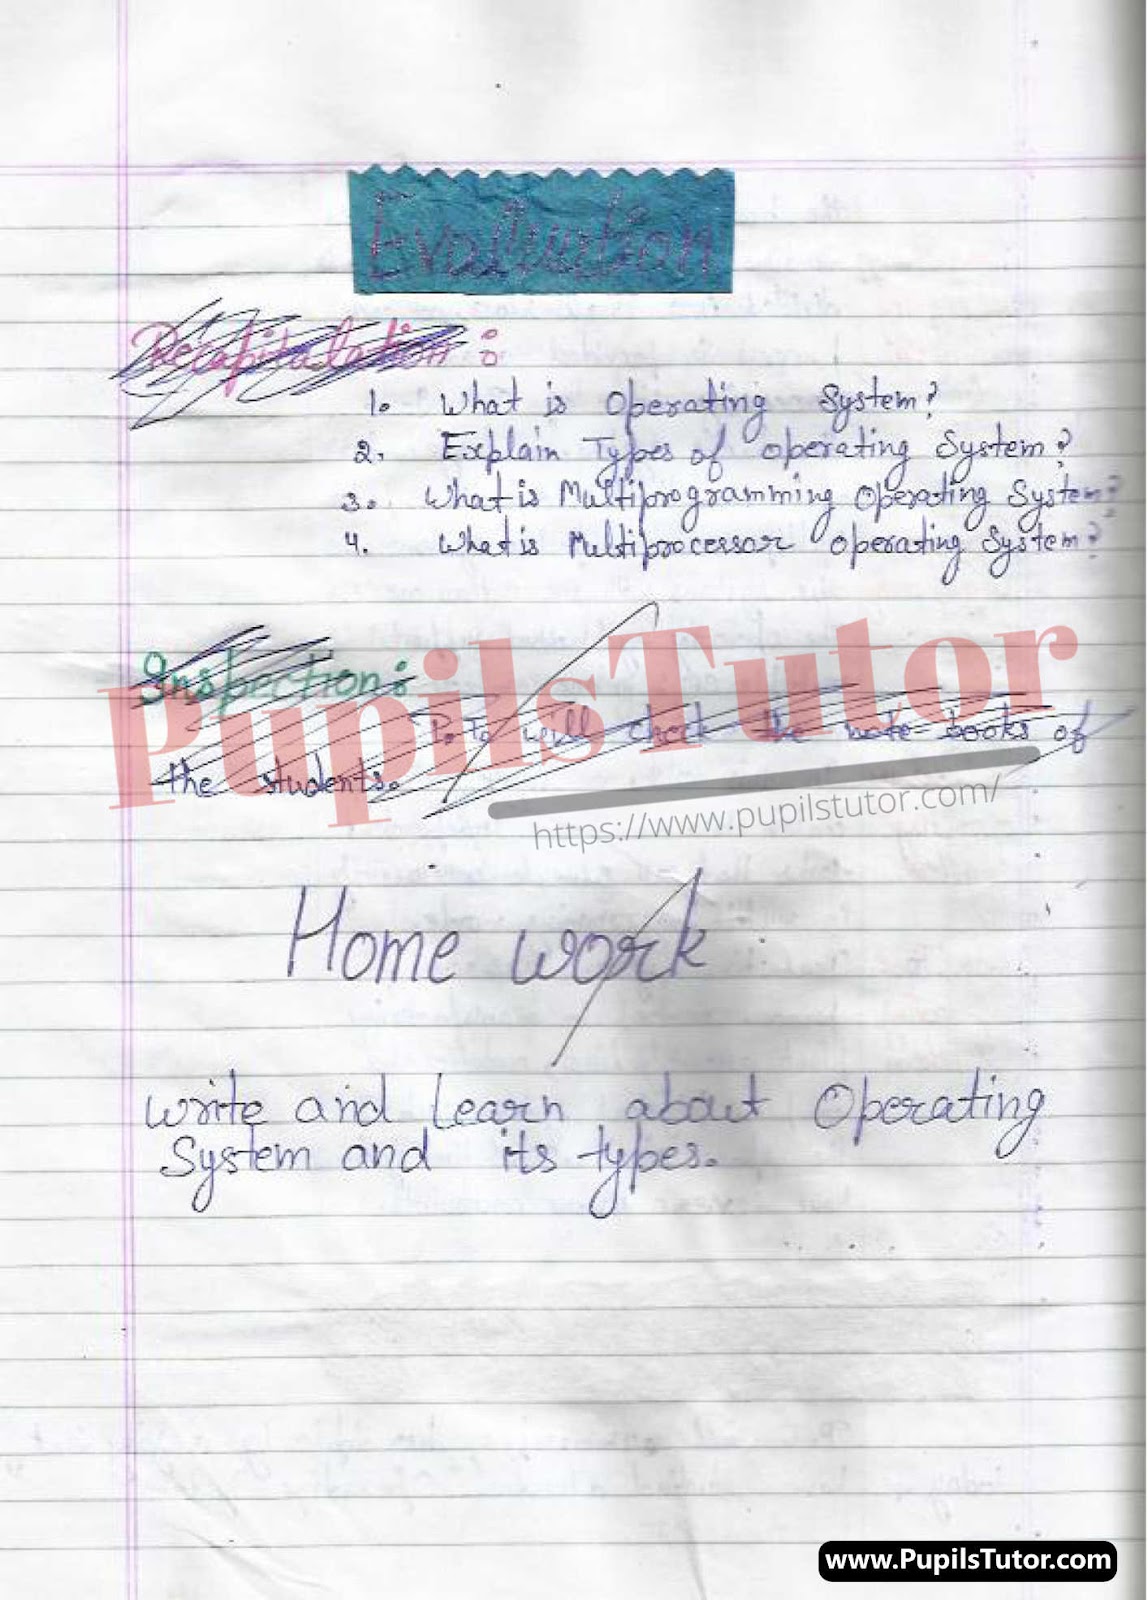 Evaluation
Recapitulation :
1. What is Operating System?
2. Explain Types of Operating System?
3. What is Multiprogramming Operating System?
4. What is Multiprocessor Operating System?
Inspection :
P.T. will check the note books of
the students.
PupilsTutor
https://www.pupilstutor.com/
Home work
Write and Learn about Operating
System and its types.
www.PupilsTutor.com